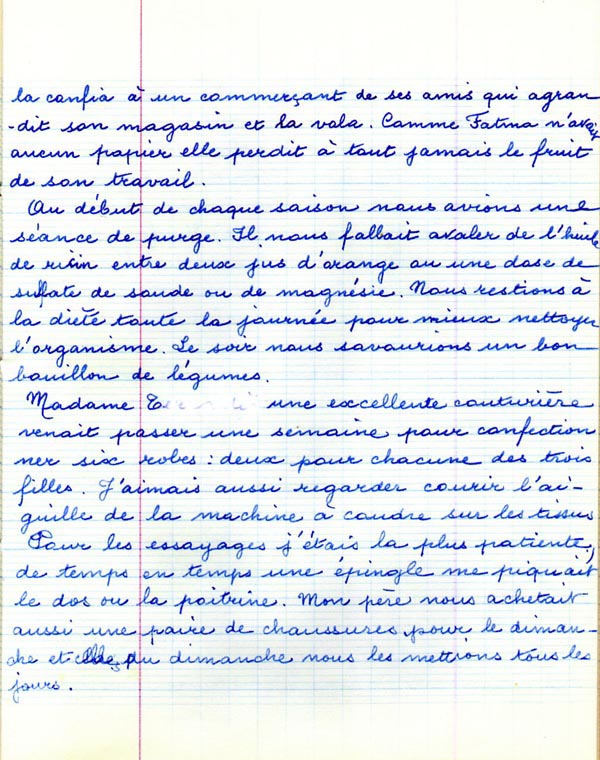 la confia à un commerçant de ses amis qui agran
-dit son magasin et la vola. Comme Fatma n'avait
aucun papier elle perdit à tout jamais le fruit
de son travail.
Au début de chaque saison nous avions une
séance de purge. Il nous fallait avaler de l'huile
de ricin entre deux jus d'orange ou une dose de
sulfate de soude ou de magnésie. Nous restions à
la diète toute la journée pour mieux nettoyer
l'organisme. Le soir nous savourions un bon
bouillon de légumes.
Madame une excellente couturière
venait passer une semaine pour confection
ner six robes : deux pour chacune des trois
filles. J'aimais aussi regarder courir l'ai-
guille de la machine à coudre sur les tissus
Pour les essayages j'étais la plus patiente,
de temps en temps une épingle me piquait
le dos ou la poitrine. Mon père nous achetait
aussi une paire de chaussures pour le diman-
che et du dimanche nous les mettions tous les
jours.